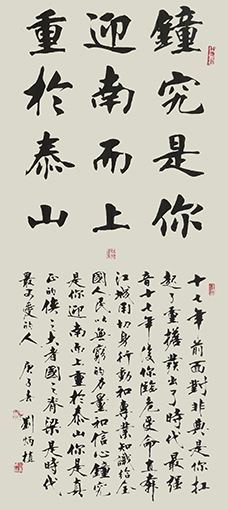 鐘究是你
迎南而上
重於泰山
十七年前面對非典是你扛
起了重擔發出了時代最強
音十七年後你臨危受命直奔
江城南切身行動和專業知識給全
國人民以無窮的力量和信心鐘究
是你迎南而上重於泰山你是真
正的俠之大者國之脊梁是時代
最可愛的人 庚子春 劉炳植